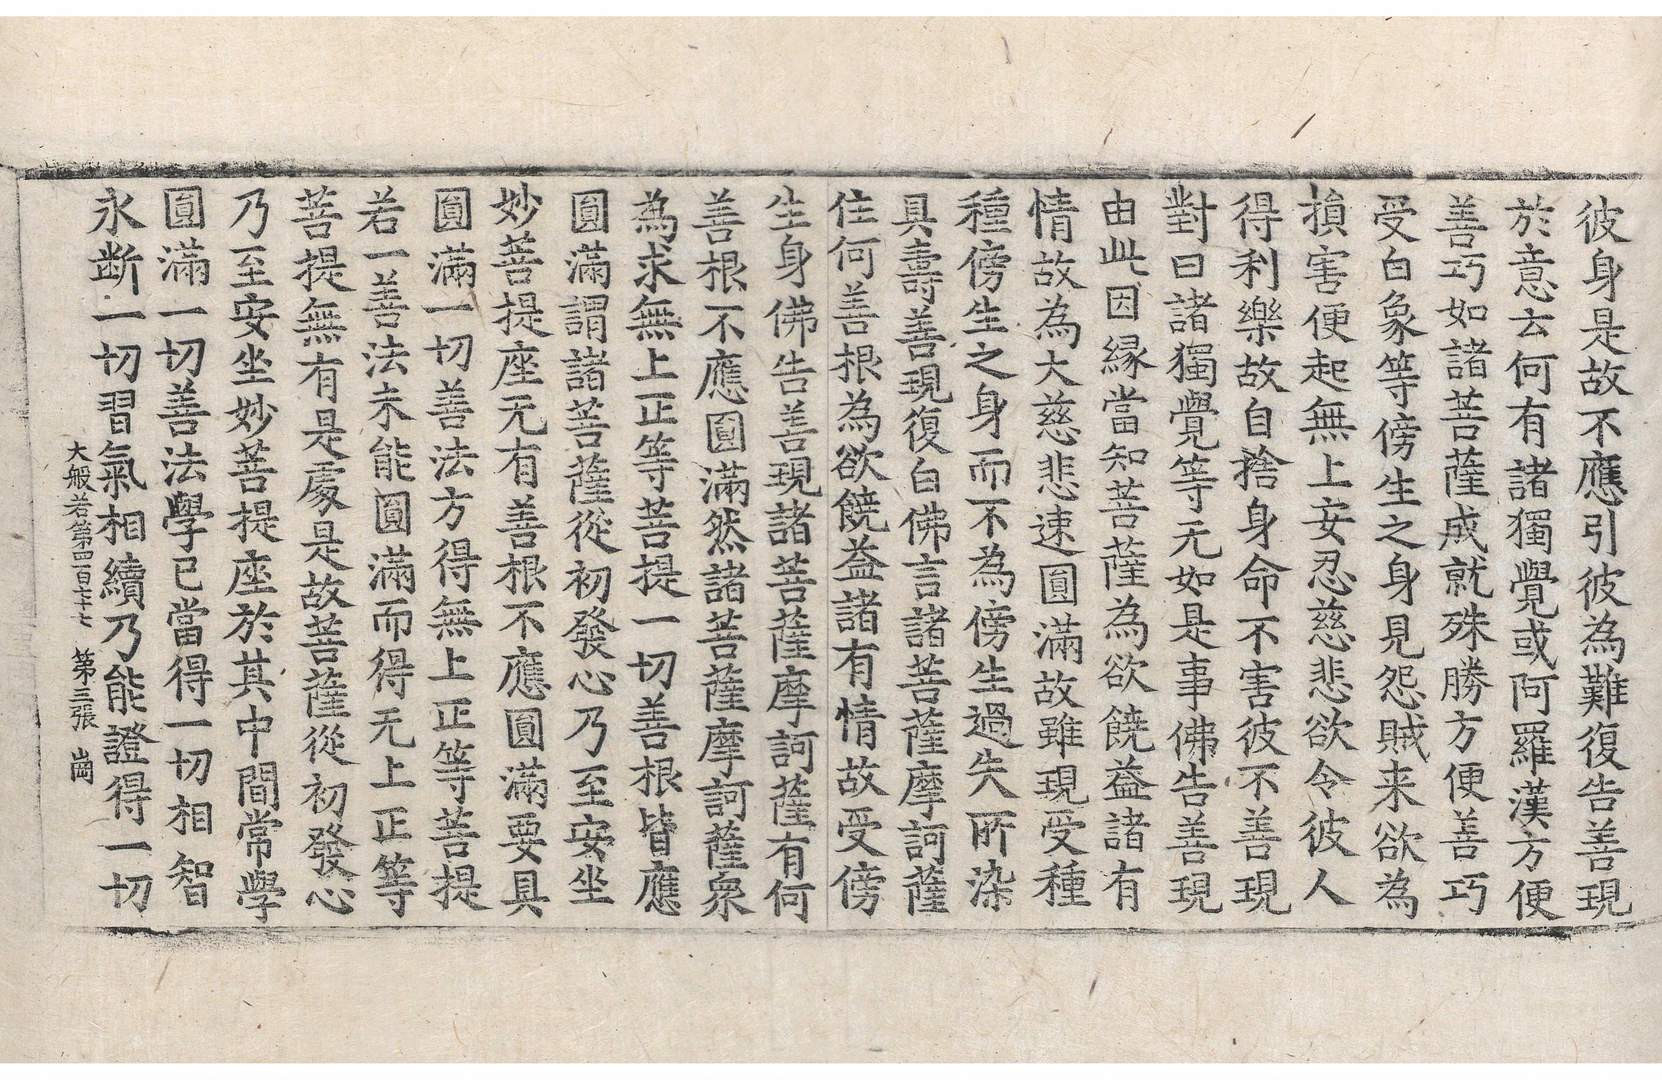 彼身是故不應引彼為難復告善現
於意云何有諸獨覺或阿羅漢方便
善巧如諸菩薩成就殊勝方便善巧
受白象等傍生之身見怨賊来欲為
損害便起無上安忍慈悲欲令彼人
得利樂故自捨身命不害彼不善現
對曰諸獨覺等无如是事佛告善現
由此因縁當知菩薩為欲饒益諸有
情故為大慈悲速圓滿故雖現受種
種傍生之身而不為傍生過失所染
具壽善現復白佛言諸菩薩摩訶薩
住何善根為欲饒益諸有情故受傍
生身佛告善現諸菩薩摩訶薩有何
善根不應圓滿然諸菩薩摩訶薩衆
為求無上正等菩提一切善根皆應
圓滿謂諸菩薩從初發心乃至安坐
妙菩提座无有善根不應圓滿要具
圓滿一切善法方得無上正等菩提
若一善法未能圓滿而得无上正等
菩提無有是處是故菩薩從初發心
乃至安坐妙菩提座於其中間常學
圓滿一切善法學已當得一切相智
永断一切習氣相續乃能證得一切
大般若第四百七十七 第三張 崗